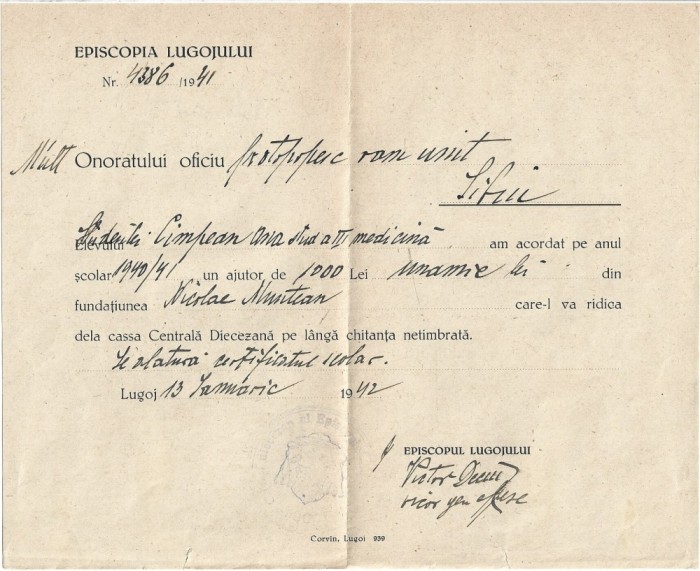 EPISCOPIA LUGOJULUI
Nr. 4386/1941
Mult Onoratului oficiu protopopesc rom unit
Sibiu
Elevului Cimpean Ana stud a III medicină am acordat pe anul
școlar 1940/41 un ajutor de 1000 Lei una mie lei din
fundațiunea Nicolae Muntean care-l va ridica
dela cassa Centrală Diecezană pe lângă chitanța netimbrată.
Se alatură certificatul scolar.
Lugoj 13 Ianuarie 1942
EPISCOPUL LUGOJULUI
Victor
Corvin, Lugoj 939